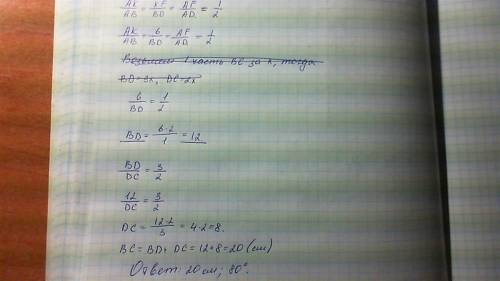 AK/AB = KF/BD = AF/AD = 1/2
AK/AB = 6/BD = AF/AD = 1/2
Возьмем 1 часть BC за x, тогда
BD=3x, DC=2x
6/BD = 1/2
BD = 6·2/1 = 12
BD/DC = 3/2
12/DC = 3/2
DC = 12·2/3 = 4·2=8.
BC = BD+DC = 12+8=20 (см)
Ответ: 20см; 80°.